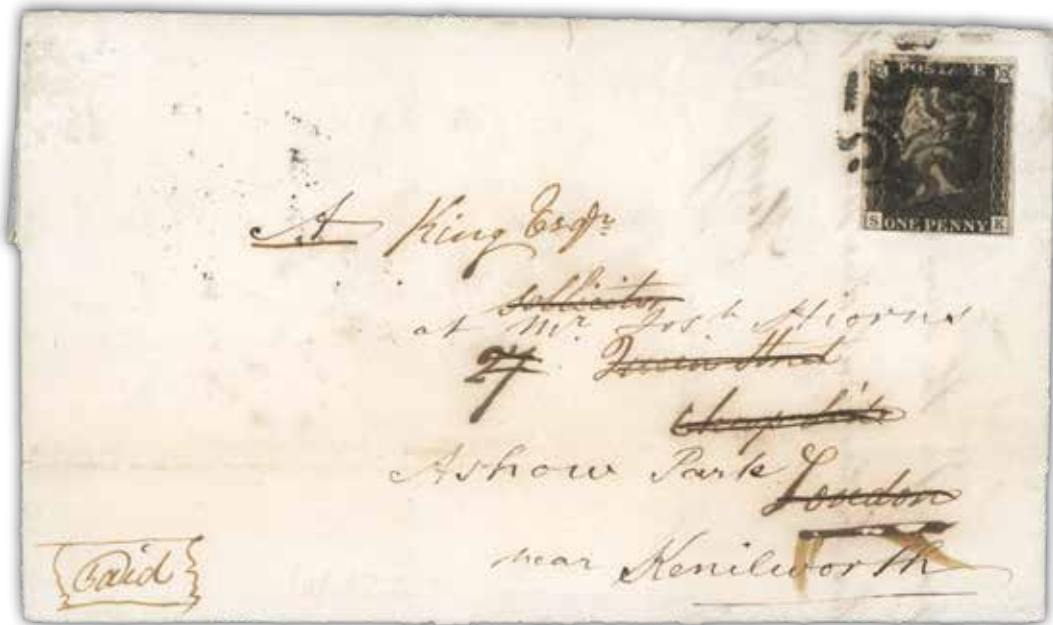 POSTAGE
S ONE PENNY K
A King Esqr
sollicitor
at Mr. Josh Hiorns
27 Street
Cheapside
Ashow Park London
near Kenilworth
Paid